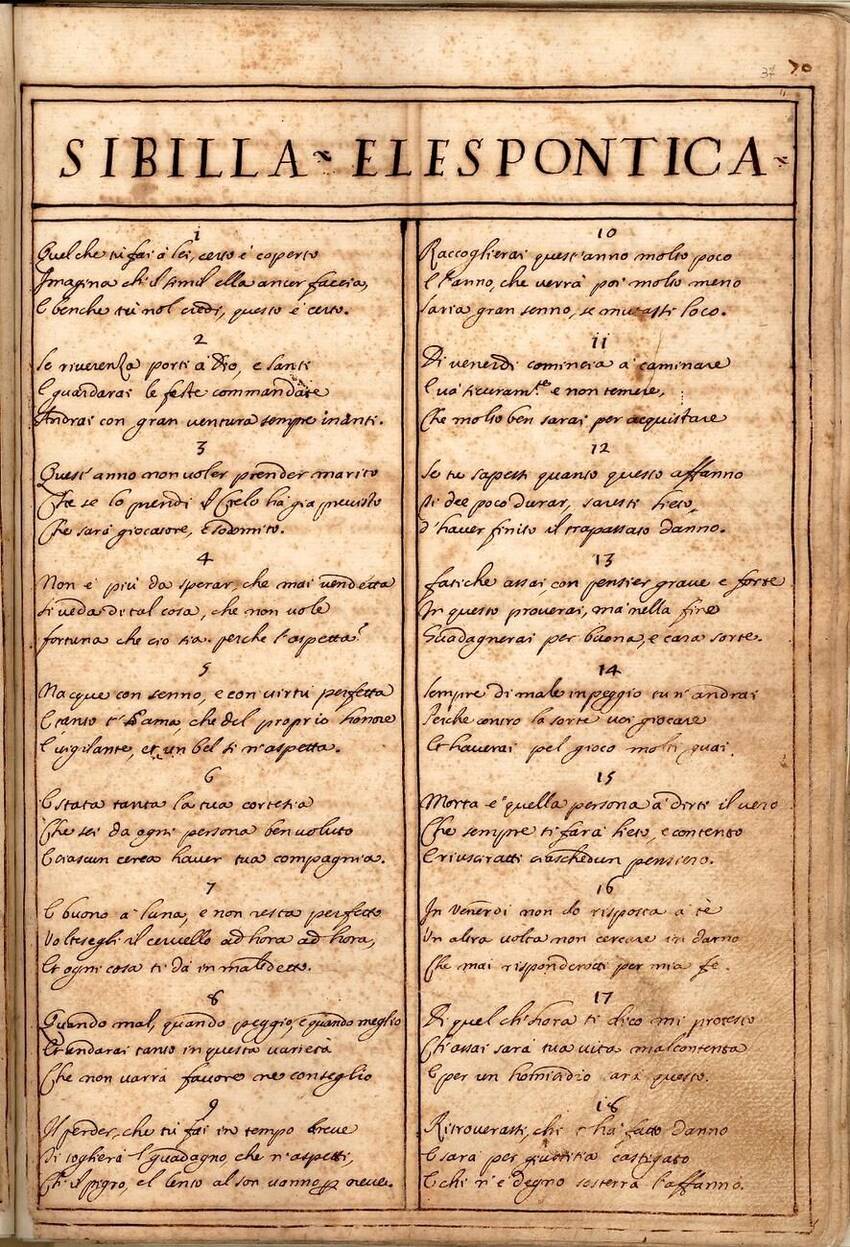 37 70
SIBILLA ELESPONTICA
1
Quel che tu fai à lei, certo è coperto
Imagina ch'il simil ella ancor faccia,
E benche tu nol credi, questo è certo.
2
Se riverenza porti à Dio, e santi
E guardarai le feste commandate
Andrai con gran ventura sempre inanti.
3
Quest'anno non voler prender marito
Che se lo prendi il Cielo hà gia previsto
Che sarà giocatore, e sodomito.
4
Non è più da sperar, che mai vendetta
si veda di tal cosa, che non vole
fortuna che cio sia. perche l'aspetta?
5
Nacque con senno, e con virtù perfetta
E tanto t'ama, che del proprio honore
E vigilante, et un bel si n'aspetta.
6
E stata tanta la tua cortesia
Che sei da ogni persona ben voluto
E ciascun cerca haver tua compagnia.
7
E buono à luna, e non resta perfetto
Voltesegli il cervello ad hora ad hora,
Et ogni cosa ti dà in maledetto.
8
Quando mal, quando peggio, e quando meglio
Et andarai tanto in questa varietà
Che non varrà favore ne conseglio
9
Il perder, che tu fai in tempo breve
Ti togherà l'guadagno che n'aspetti,
Ch'il pigro, el lento al son vanno neve.
10
Raccoglierai quest'anno molto poco
E l'anno, che verrà poi molto meno
saria gran senno, se mutasti loco.
11
Di venerdi comincia à caminare
E và sicuram.te e non temere,
Che molto ben sarai per acquistare
12
Se tu sapesti quanto questo affanno
ti dee poco durar, saresti lieto,
d'haver finito il trapassato danno.
13
fatiche assai, con pensier grave e forte
In questo proverai, ma nella fine
Guadagnerai per buona, e cara sorte.
14
sempre di male in peggio tu n'andrai
Perche contro la sorte voi giocare
Et haverai pel gioco molti guai.
15
Morta è quella persona à dirti il vero
Che sempre ti farà lieto, e contento
E riusciratti ciaschedun pensiero.
16
In Venerdi non do risposta à tè
Un altra volta non cercare in darno
Che mai risponderotti per mia fe.
17
Di quel ch'hora ti dico mi protesto
Ch'assai sarà tua vita malcontenta
E per un homicidio sarà questo.
18
Ritroverasti, chi t'hà fatto danno
E sarà per giustitia castigato
E chi n'è degno sosterrà l'affanno.